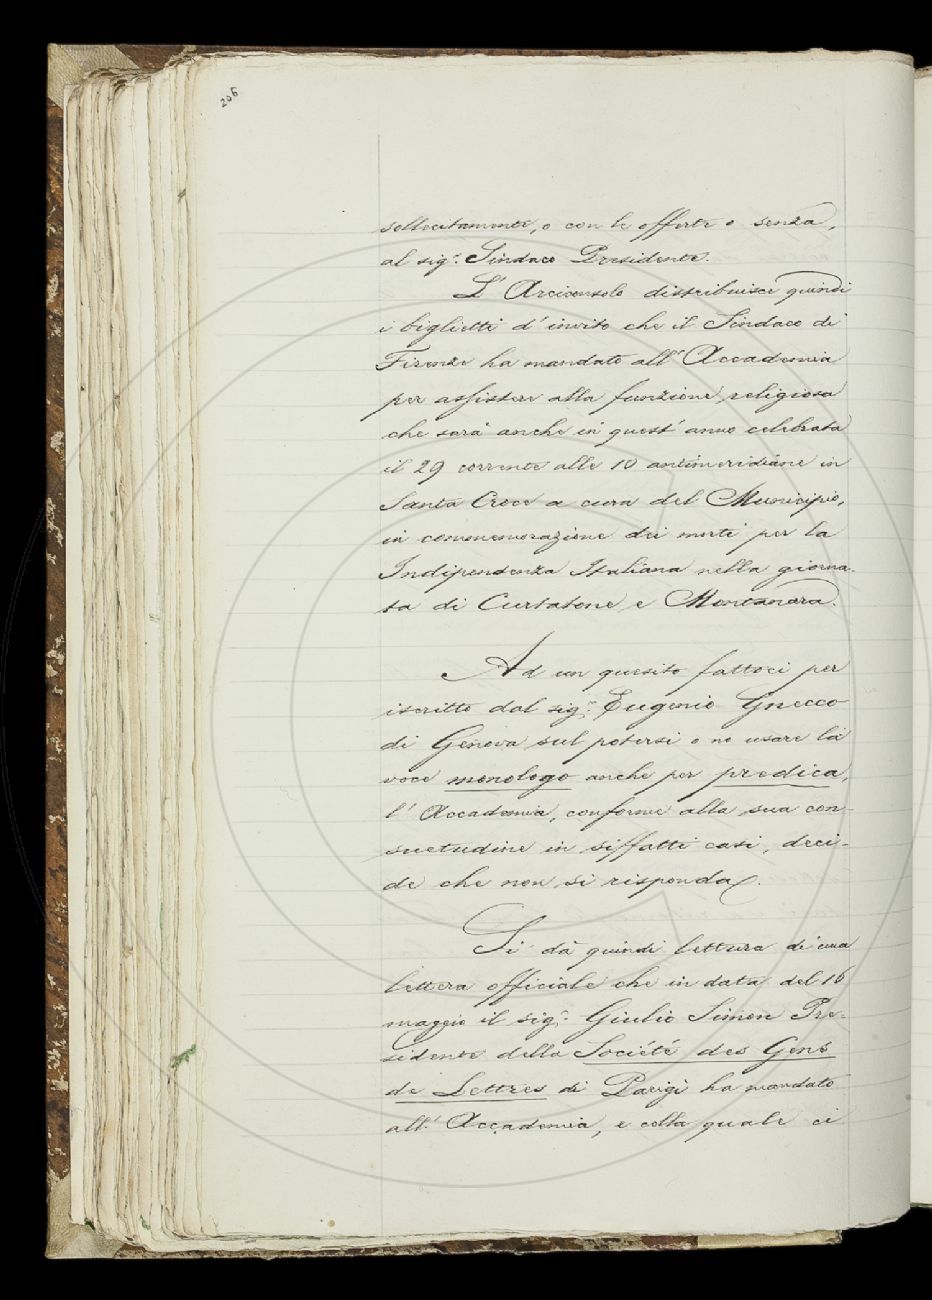 206
sollecitamente, o con le offerte o senza,
al sig.r Sindaco Presidente.
L' Arciconsolo distribuisce quindi
i biglietti d' invito che il Sindaco di
Firenze ha mandato all' Accademia
per assistere alla funzione religiosa
che sarà anche in quest' anno celebrata
il 29 corrente alle 10 antimeridiane in
Santa Croce a cura del Municipio,
in commemorazione dei morti per la
Indipendenza Italiana nella giorna-
ta di Curtatone e Montanara.
Ad un quesito fattoci per
iscritto dal sig.r Eugenio Gnecco
di Genova sul potersi o no usare la
voce monologo anche per predica,
l' Accademia, conforme alla sua con-
suetudine in siffatti casi, deci-
de che non si risponda.
Si dà quindi lettura di una
lettera officiale che in data del 16
maggio il sig.r Giulio Simon Pre-
sidente della Société des Gens
de Lettres di Parigi ha mandato
all' Accademia, e colla quale ci